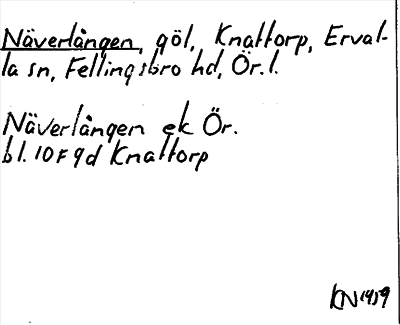 Näverlången, göl, Knattorp, Erval-
la sn, Fellingsbro hd, Ör. l.
Näverlången ek Ör.
bl. 10 F 9d Knattorp
KN 1959